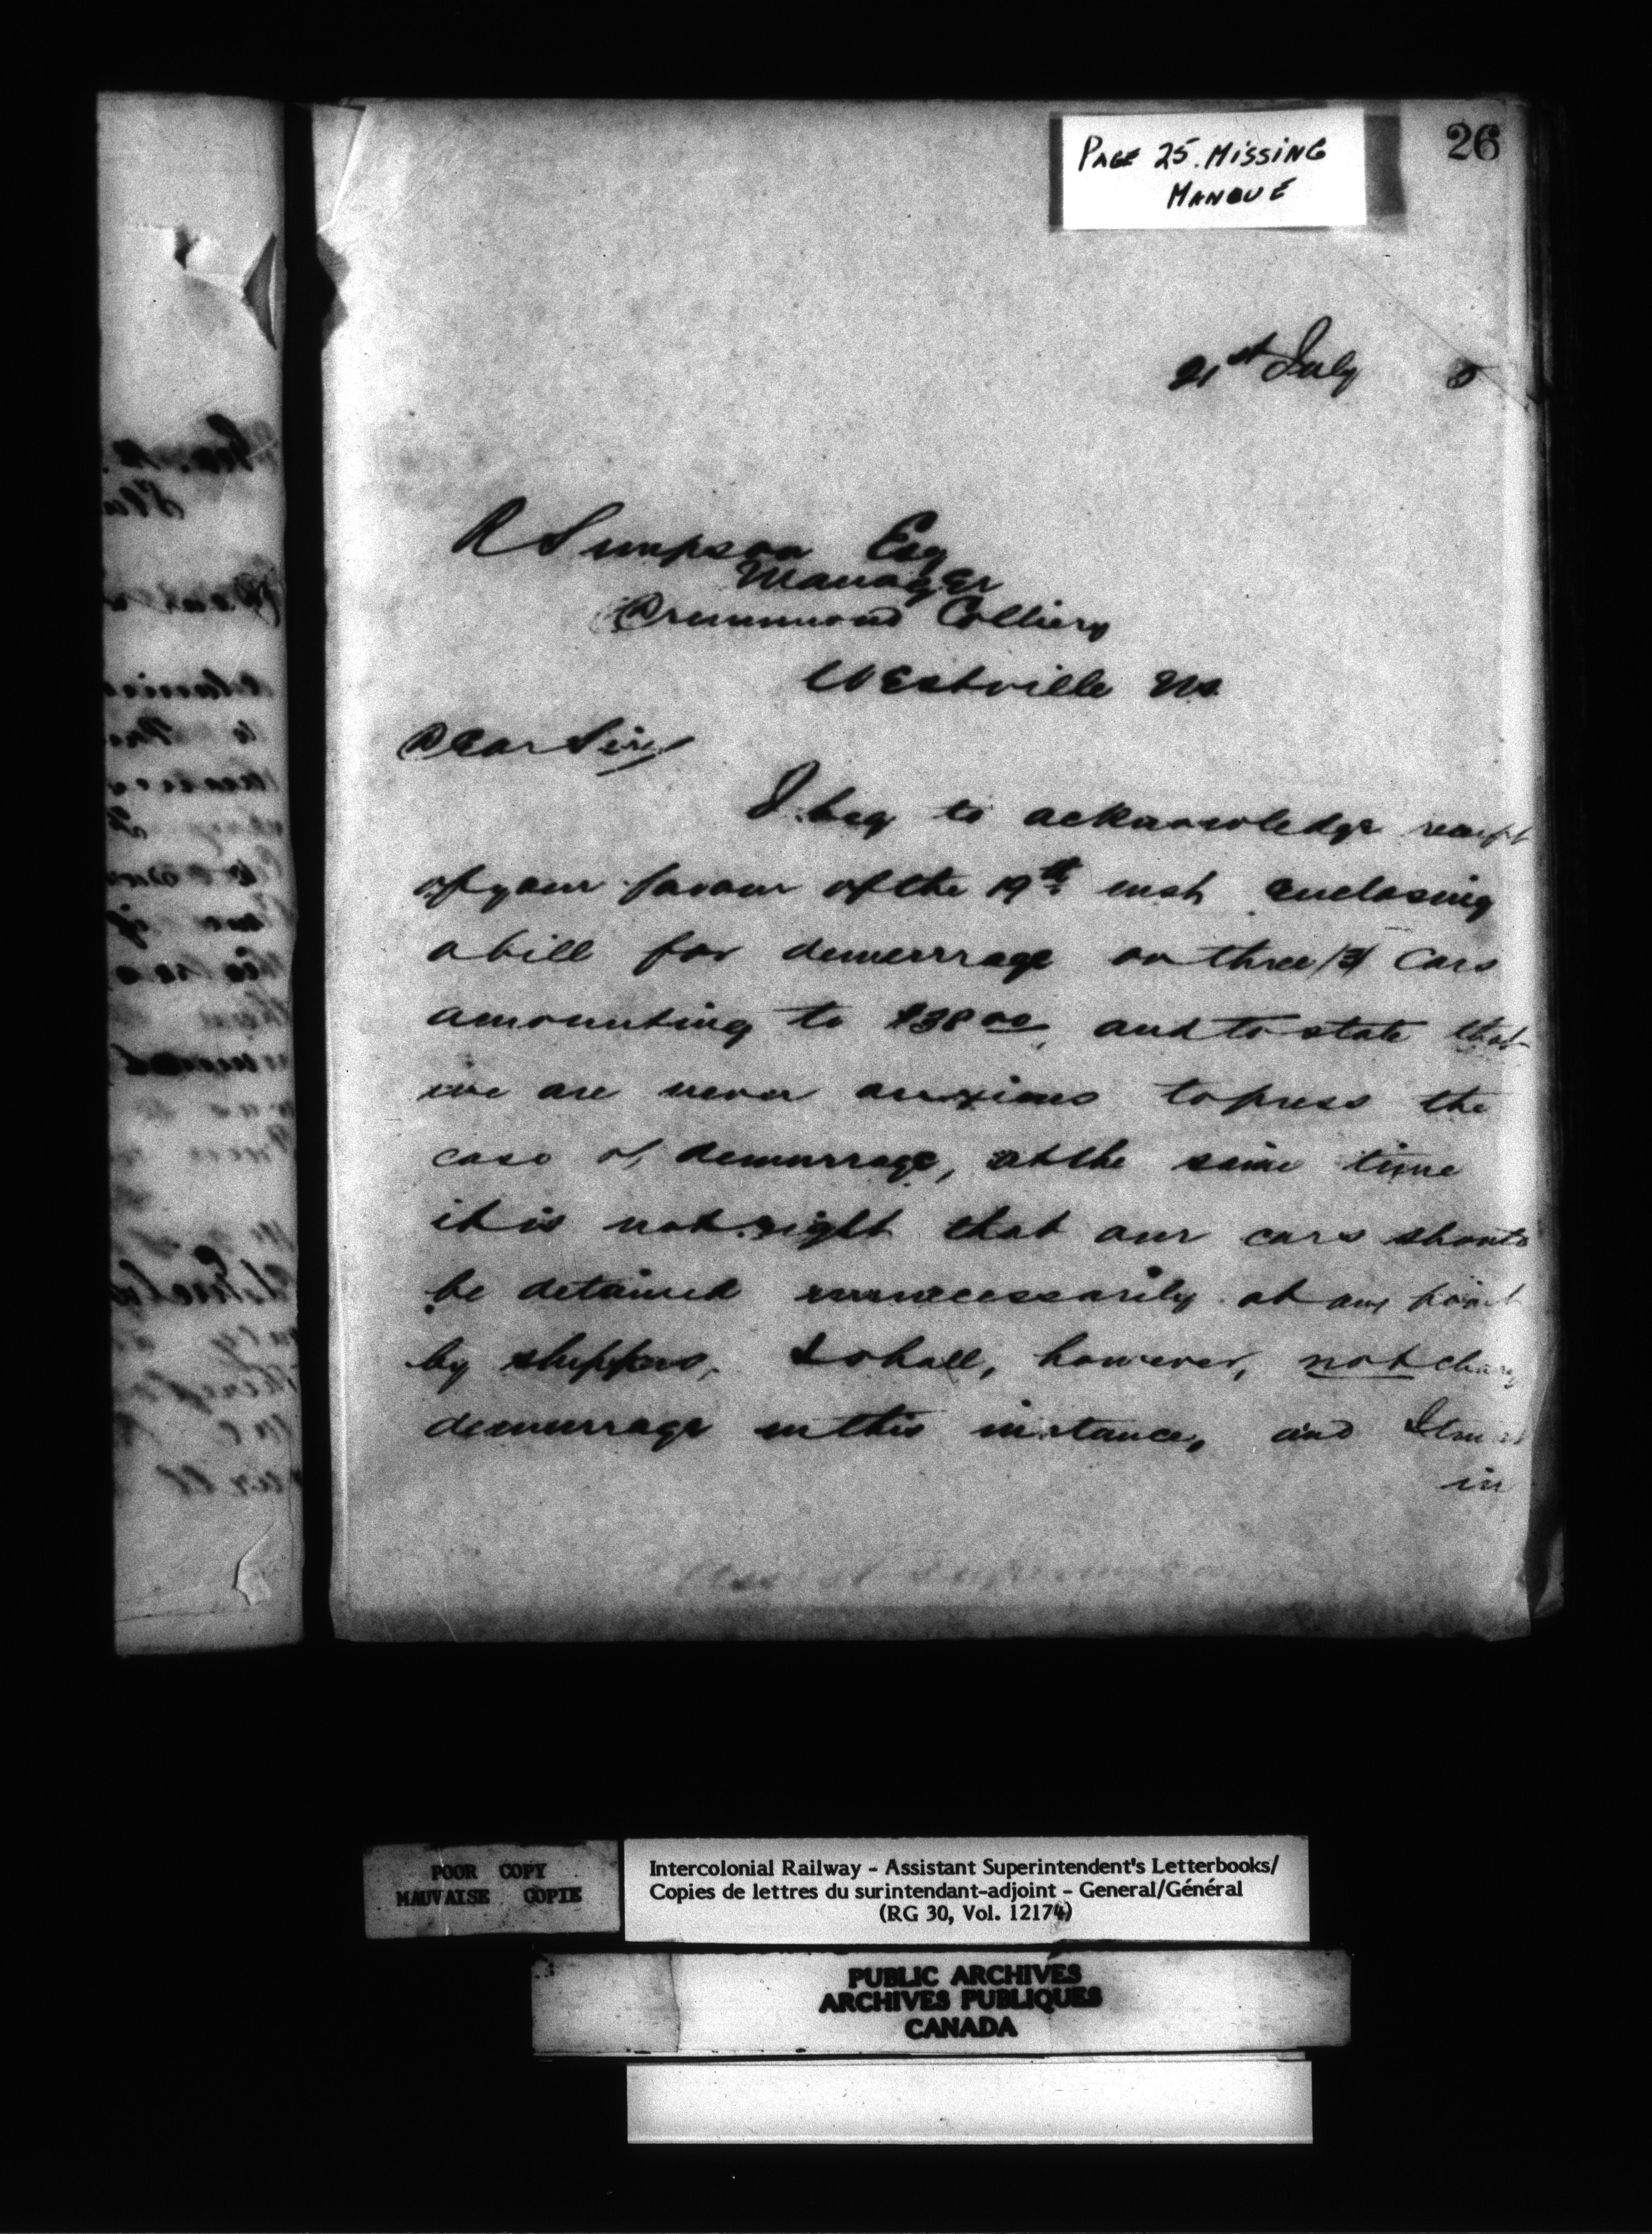 PAGE 25. MISSING
MANQUE
26
21st July 5
R Simpson Esq
Manager
Drummond Colliery
Westville NS
Dear Sir,
I beg to acknowledge receipt
of your favour of the 19th inst enclosing
a bill for demerrage on three (3) Cars
amounting to $38 00, and to state that
we are never anxious to press the
case of demurrage, at the same time
it is not right that our cars should
be detained unnecessarily at any point
by shippers. I shall, however, not charge
demurrage in this instance, and I trust
in
POOR COPY
MAUVAISE COPIE
Intercolonial Railway - Assistant Superintendent's Letterbooks/
Copies de lettres du surintendant-adjoint - General/Général
(RG 30, Vol. 12174)
PUBLIC ARCHIVES
ARCHIVES PUBLIQUES
CANADA